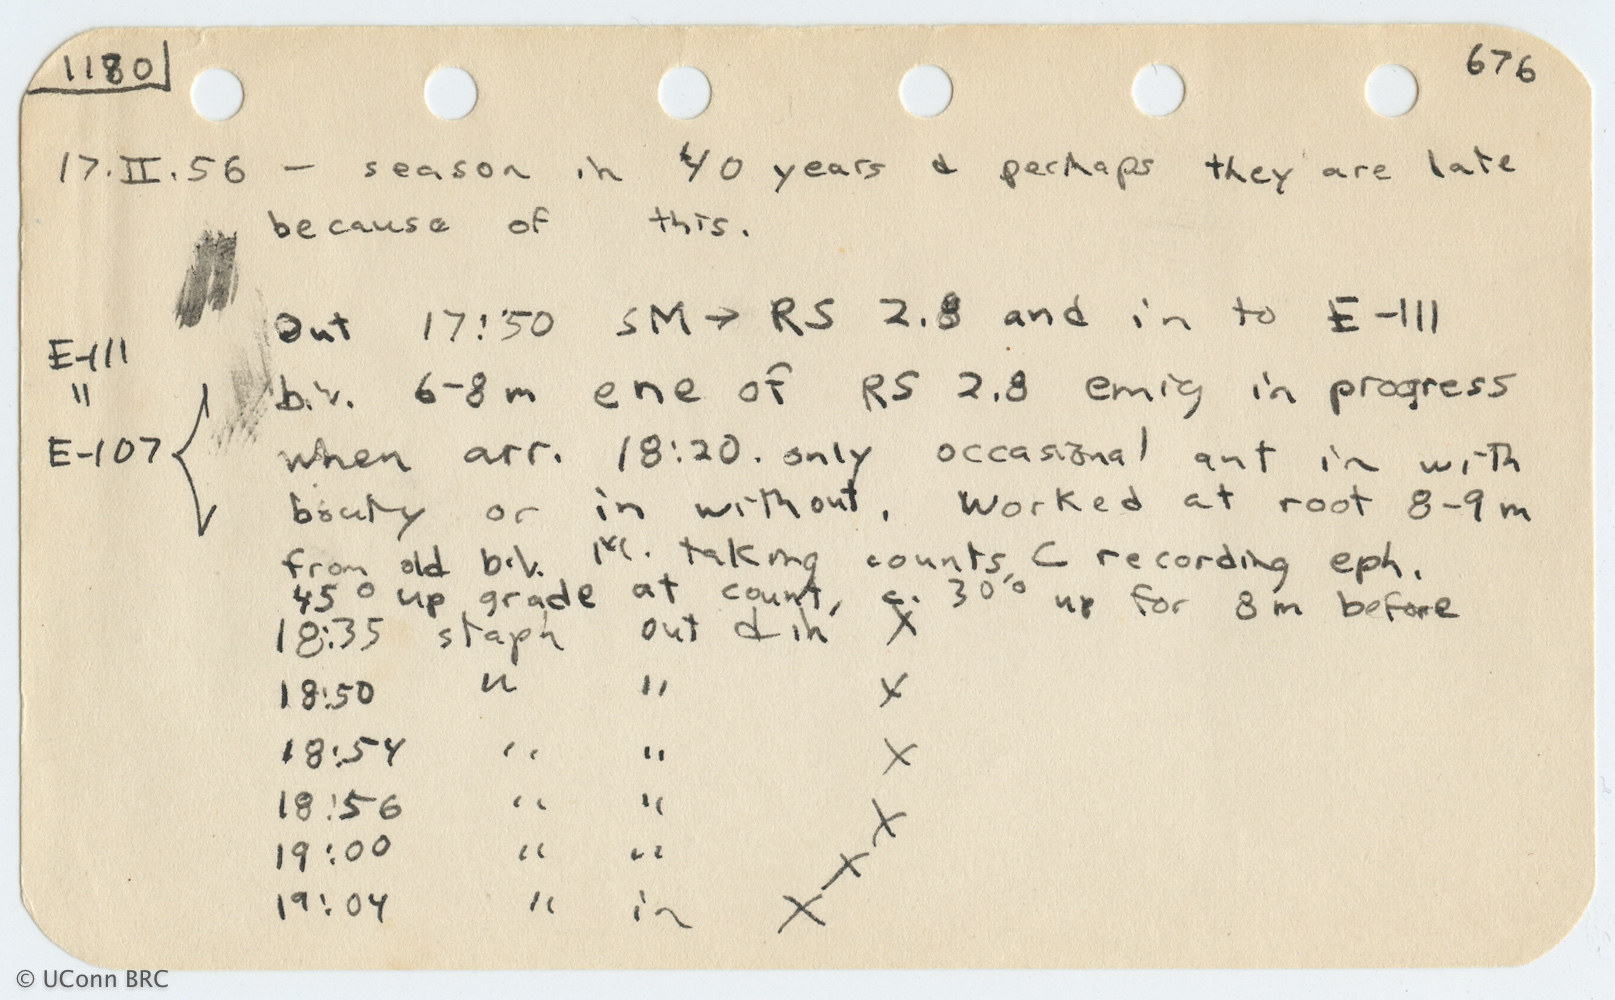 1180
676
17.II.56 — season in 40 years & perhaps they are late
because of this.
Out 17:50 SM → RS 2.8 and in to E-111
E-111
biv. 6-8m ene of RS 2.8 emig in progress
"
E-107 when arr. 18:20. only occasional ant in with
booty or in without. Worked at root 8-9m
from old biv. taking counts, C recording eph.
45° up grade at count, c. 30° up for 8m before
18:35 staph out & in X
18:50 " " X
18:54 " " X
18:56 " " X
19:00 " " X
19:04 " in X
© UConn BRC